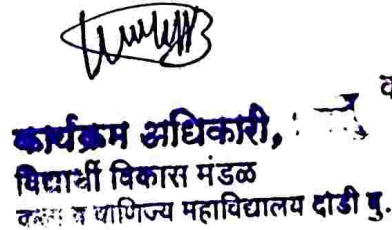 कार्यक्रम अधिकारी,
विद्यार्थी विकास मंडळ
व वाणिज्य महाविद्यालय दांडी बु.